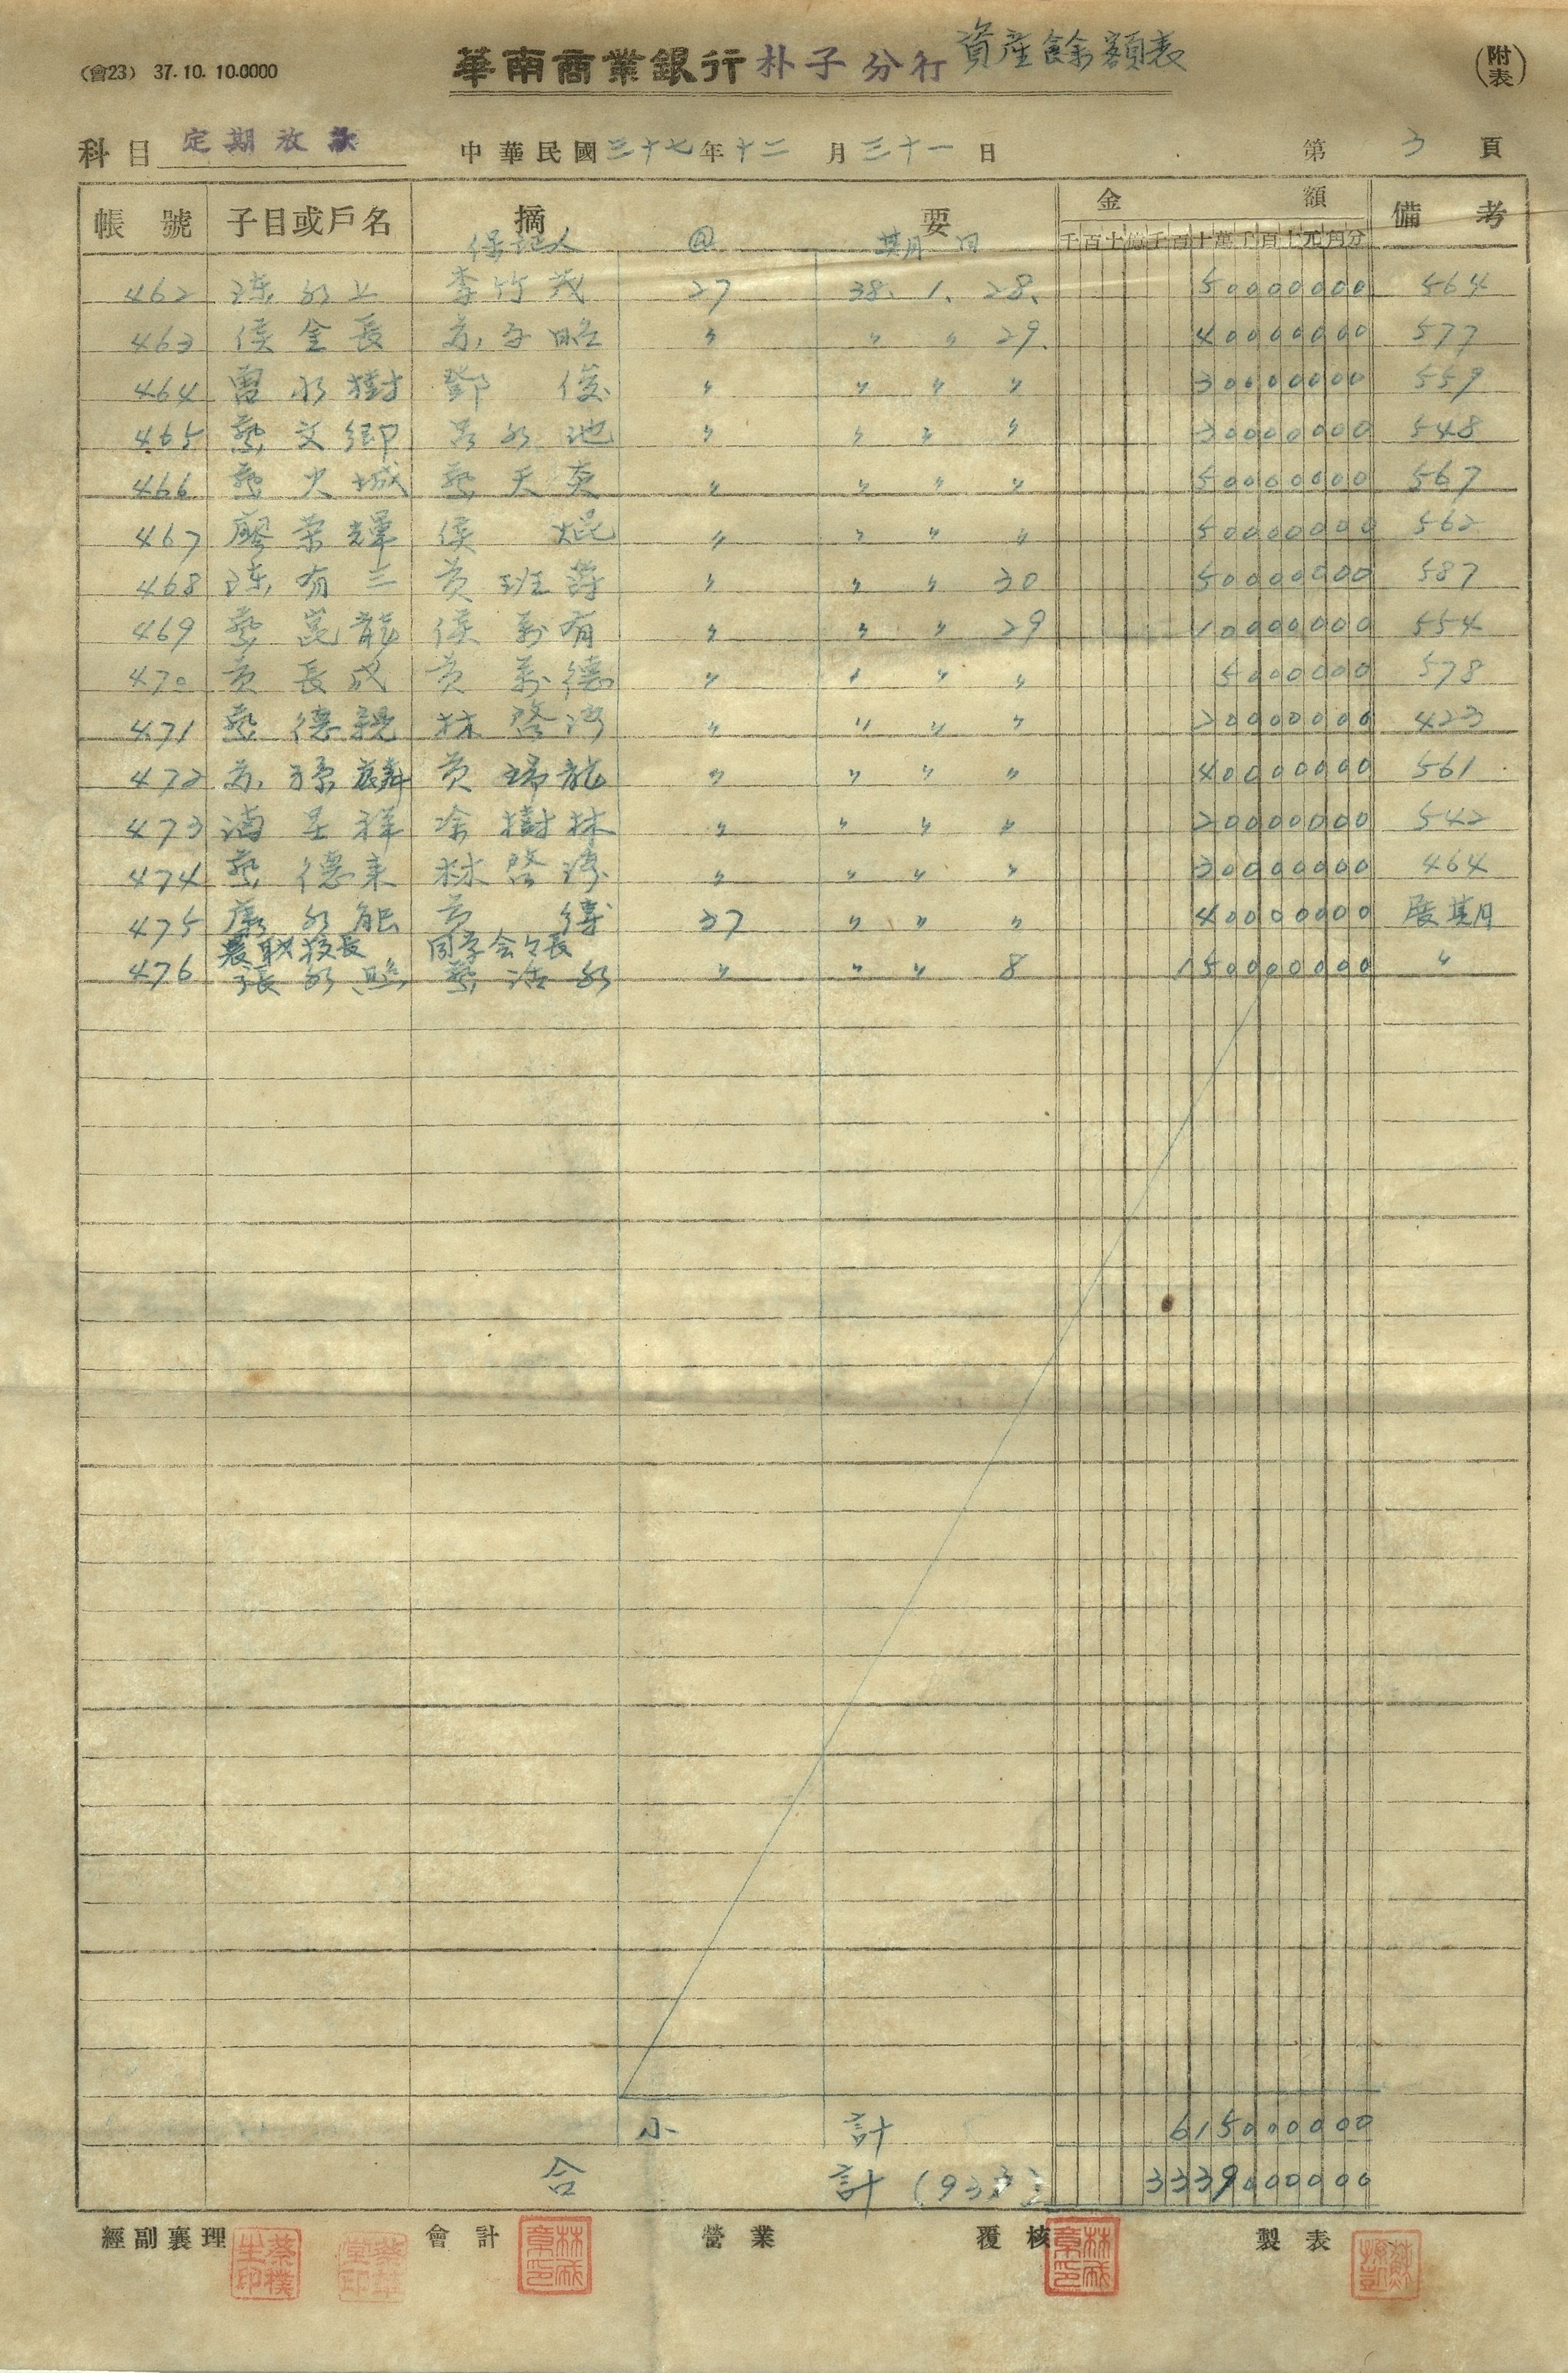 (會23) 37.10.10.0000
華南商業銀行朴子分行資産餘額表
(附表)
科目 定期放款 中華民國三十七年十二月三十一日 第3頁
帳號 子目或戶名 摘要 金額 備考
保証人 @ 期日 千百十億千百十萬千百十元角分
462 陳 李竹茂 27 38. 1. 28. 50000000 564
463 侯金長 〃 〃 〃 29. 40000000 577
464 曽水樹 鄧俊 〃 〃 〃 〃 30000000 559
465 蔡文鄉 呂水池 〃 〃 〃 〃 30000000 548
466 蔡火城 蔡天 〃 〃 〃 〃 50000000 567
467 廖荣輝 侯焜 〃 〃 〃 〃 50000000 562
468 陳有 黄 〃 〃 〃 30 50000000 587
469 蔡崑龍 侯有 〃 〃 〃 29 10000000 554
470 黄長成 黄德 〃 〃 〃 〃 5000000 578
471 蔡德親 林啓 〃 〃 〃 〃 20000000 423
472 孫麟 黄瑞龍 〃 〃 〃 〃 40000000 561
473 祥 涂樹林 〃 〃 〃 〃 20000000 542
474 蔡德来 林啓 〃 〃 〃 〃 30000000 464
475 康水能 黄 37 〃 〃 〃 40000000 展期
農職校長 同学会々長
476 張水照 蔡水 〃 〃 〃 8 150000000 〃
小計 615000000
合計 3339000000
經副襄理 會計 營業 覆核 製表